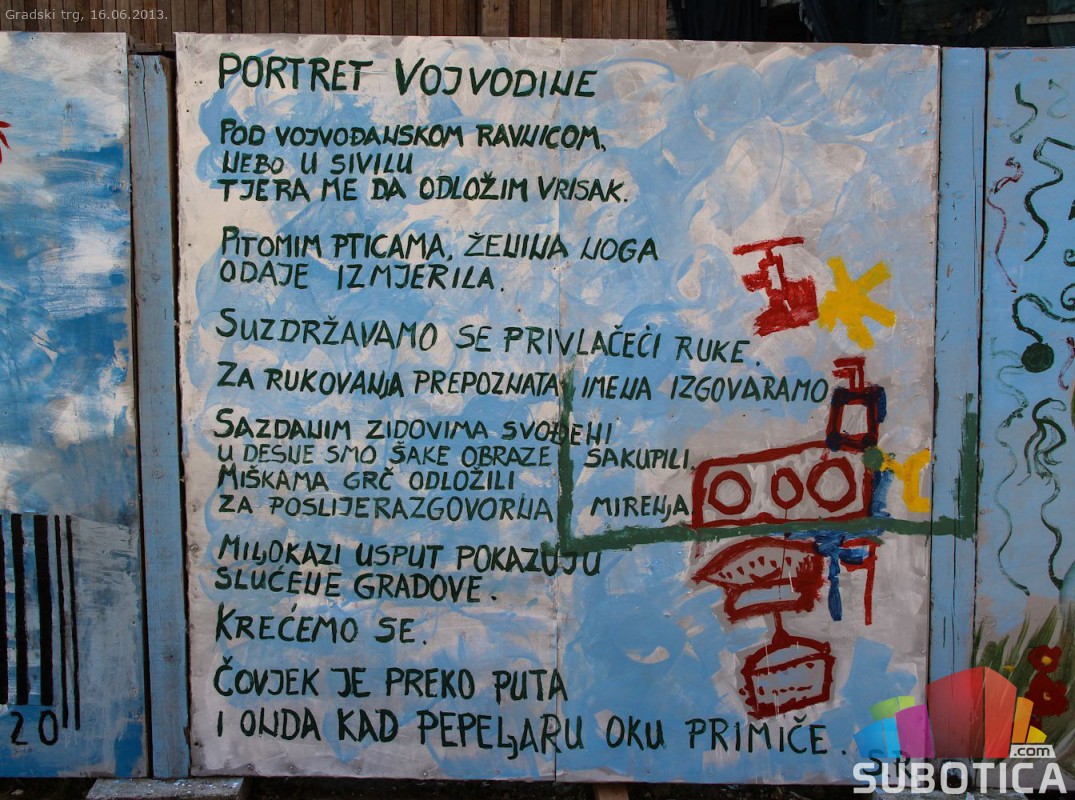 Gradski trg, 16.06.2013.
PORTRET VOJVODINE
POD VOJVOĐANSKOM RAVNICOM,
NEBO U SIVILU
TJERA ME DA ODLOŽIM VRISAK.
PITOMIM PTICAMA, ŽENINA NOGA
ODAJE IZMJERILA.
SUZDRŽAVAMO SE PRIVLAČEĆI RUKE.
ZA RUKOVANJA PREPOZNATA IMENA IZGOVARAMO
SAZDANIM ZIDOVIMA SVOĐENI
U DESNE SMO ŠAKE OBRAZE SAKUPILI.
MIŠKAMA GRČ ODLOŽILI
ZA POSLIJERAZGOVORNA MIRENJA
MILJOKAZI USPUT POKAZUJU
SLUĆENE GRADOVE.
KREĆEMO SE.
ČOVJEK JE PREKO PUTA
I ONDA KAD PEPELJARU OKU PRIMIČE.
20
.com
SUBOTICA